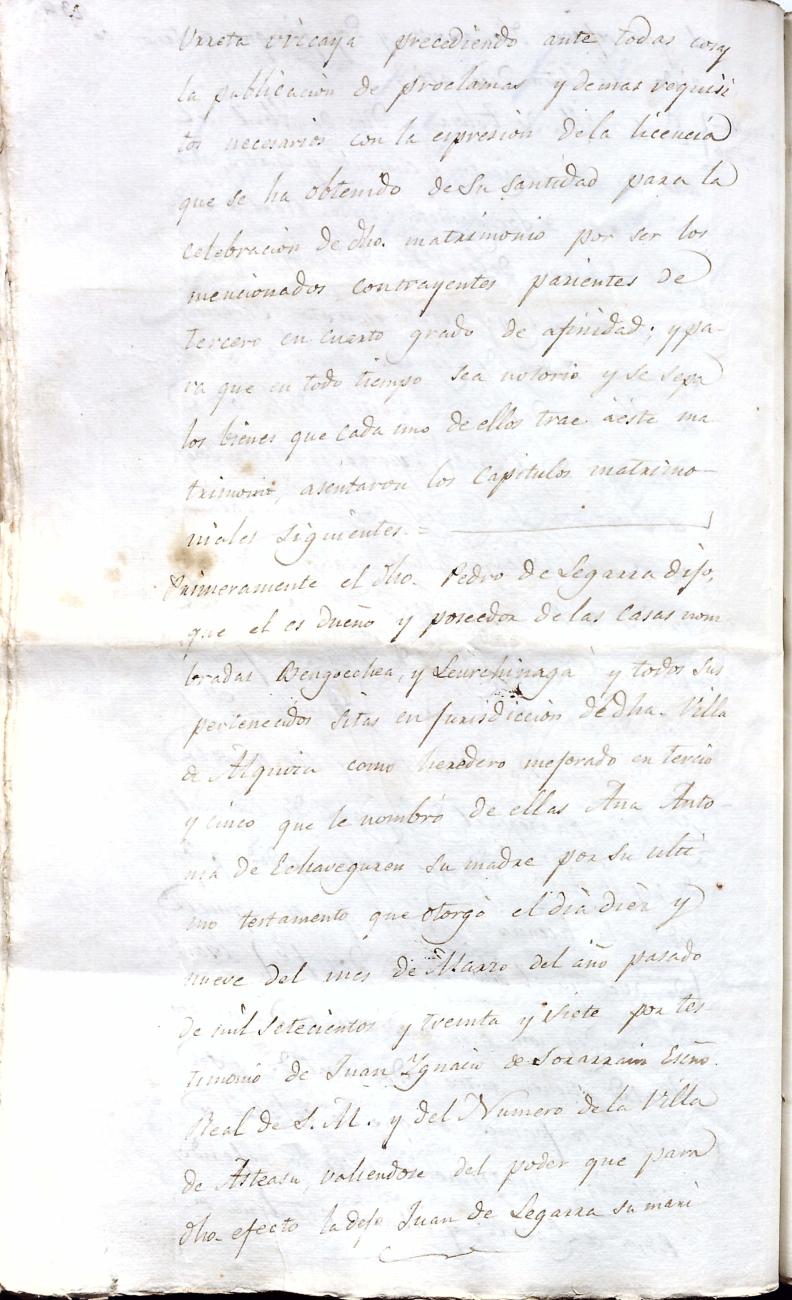 Urreta vizcaya precediendo ante todas cosas
la publicacion de proclamas y demas requisi
tos necesarios con la expresion dela licencia
que se ha obtenido de su santidad para la
celebracion de dho. matrimonio por ser los
mencionados contrayentes parientes de
tercero en cuarto grado de afinidad; y pa-
ra que en todo tiempo sea notorio y se sepa
los bienes que cada uno de ellos trae à este ma
trimonio, asentaron los Capitulos matrimo-
niales siguientes. =
Primeramente el dho. Pedro de Legarra dijo,
que el es dueño y poseedor de las Casas nom
bradas Bengoechea, y Leurchinaga y todos sus
pertenecidos sitas en jurisdiccion de dha. Villa
de Alquiza como heredero mejorado en tercio
y cinco que le nombrò de ellas Ana Anto-
nia de Echaveguren su madre por su ulti
mo testamento que otorgò el dia diez y
nueve del mes de Marzo del año pasado
de mil setecientos y treinta y siete por tes
timonio de Juan Ygnacio de Sorarrain Esño.
Real de S. M. y del Numero de la Villa
de Asteasu, valiendose del poder que para
dho efecto la dejo Juan de Legarra su mari